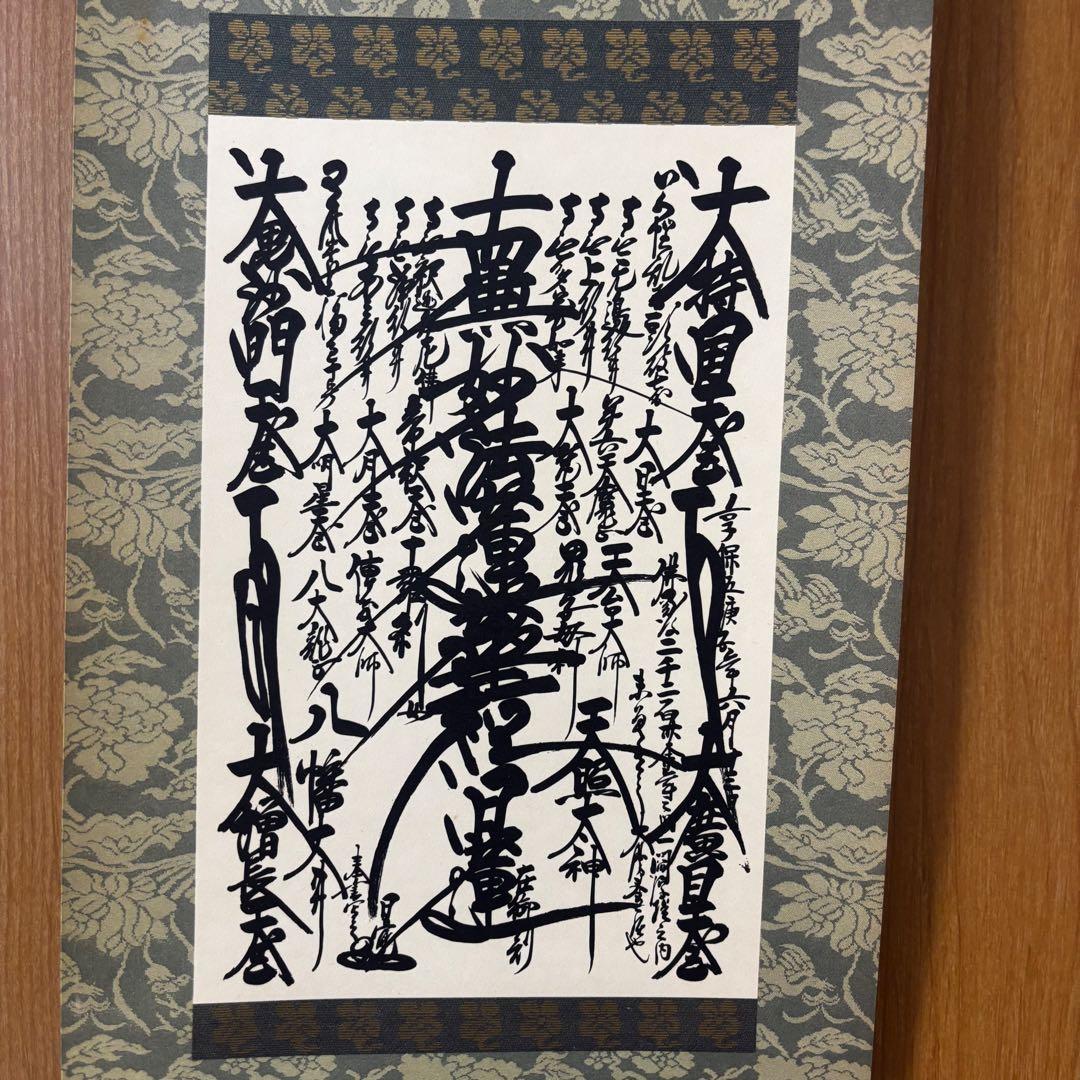 大持国天王
享保五庚子年六月十三日
大廣目天王
仏滅度後二千二百三十余年之間一閻浮提之内
未曾有大漫荼羅也
大日天王
南無無邊行菩薩
南無上行菩薩
南無多宝如来
第六天魔王
大梵天王
天台大師
鬼子母神
天照太神
南無妙法蓮華経日蓮
在御判
南無釈迦牟尼佛
南無浄行菩薩
南無安立行菩薩
帝釈天王
大月天王
大明星天王
十羅刹女
傳教大師
八大龍王
八幡大菩薩
日寛
奉書写之
大毘沙門天王
大増長天王